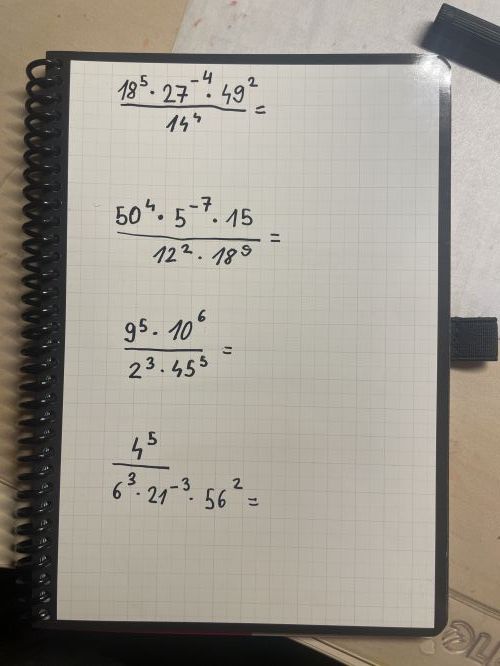 18⁵ · 27⁻⁴ · 49²
14⁴ =
50⁴ · 5⁻⁷ · 15
12² · 18⁹ =
9⁵ · 10⁶
2³ · 45⁵ =
4⁵
6³ · 21⁻³ · 56² =